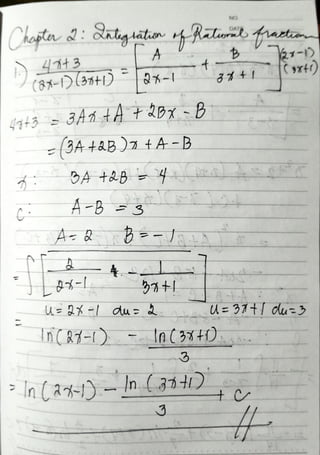 NO
DATE
Chapter 2: Integration of Rational fraction
1.) 4x+3 / (2x-1)(3x+1) = [ A / 2x-1 + B / 3x+1 ] (2x-1)(3x+1)
4x+3 = 3Ax+A + 2Bx - B
= (3A+2B)x + A-B
x: 3A +2B = 4
C: A-B = 3
A= 2 B = -1
= ∫ [ 2 / 2x-1 - 1 / 3x+1 ]
u= 2x-1 du= 2 u= 3x+1 du=3
= ln(2x-1) - ln(3x+1) / 3
= ln(2x-1) - ln(3x+1) / 3 + C //